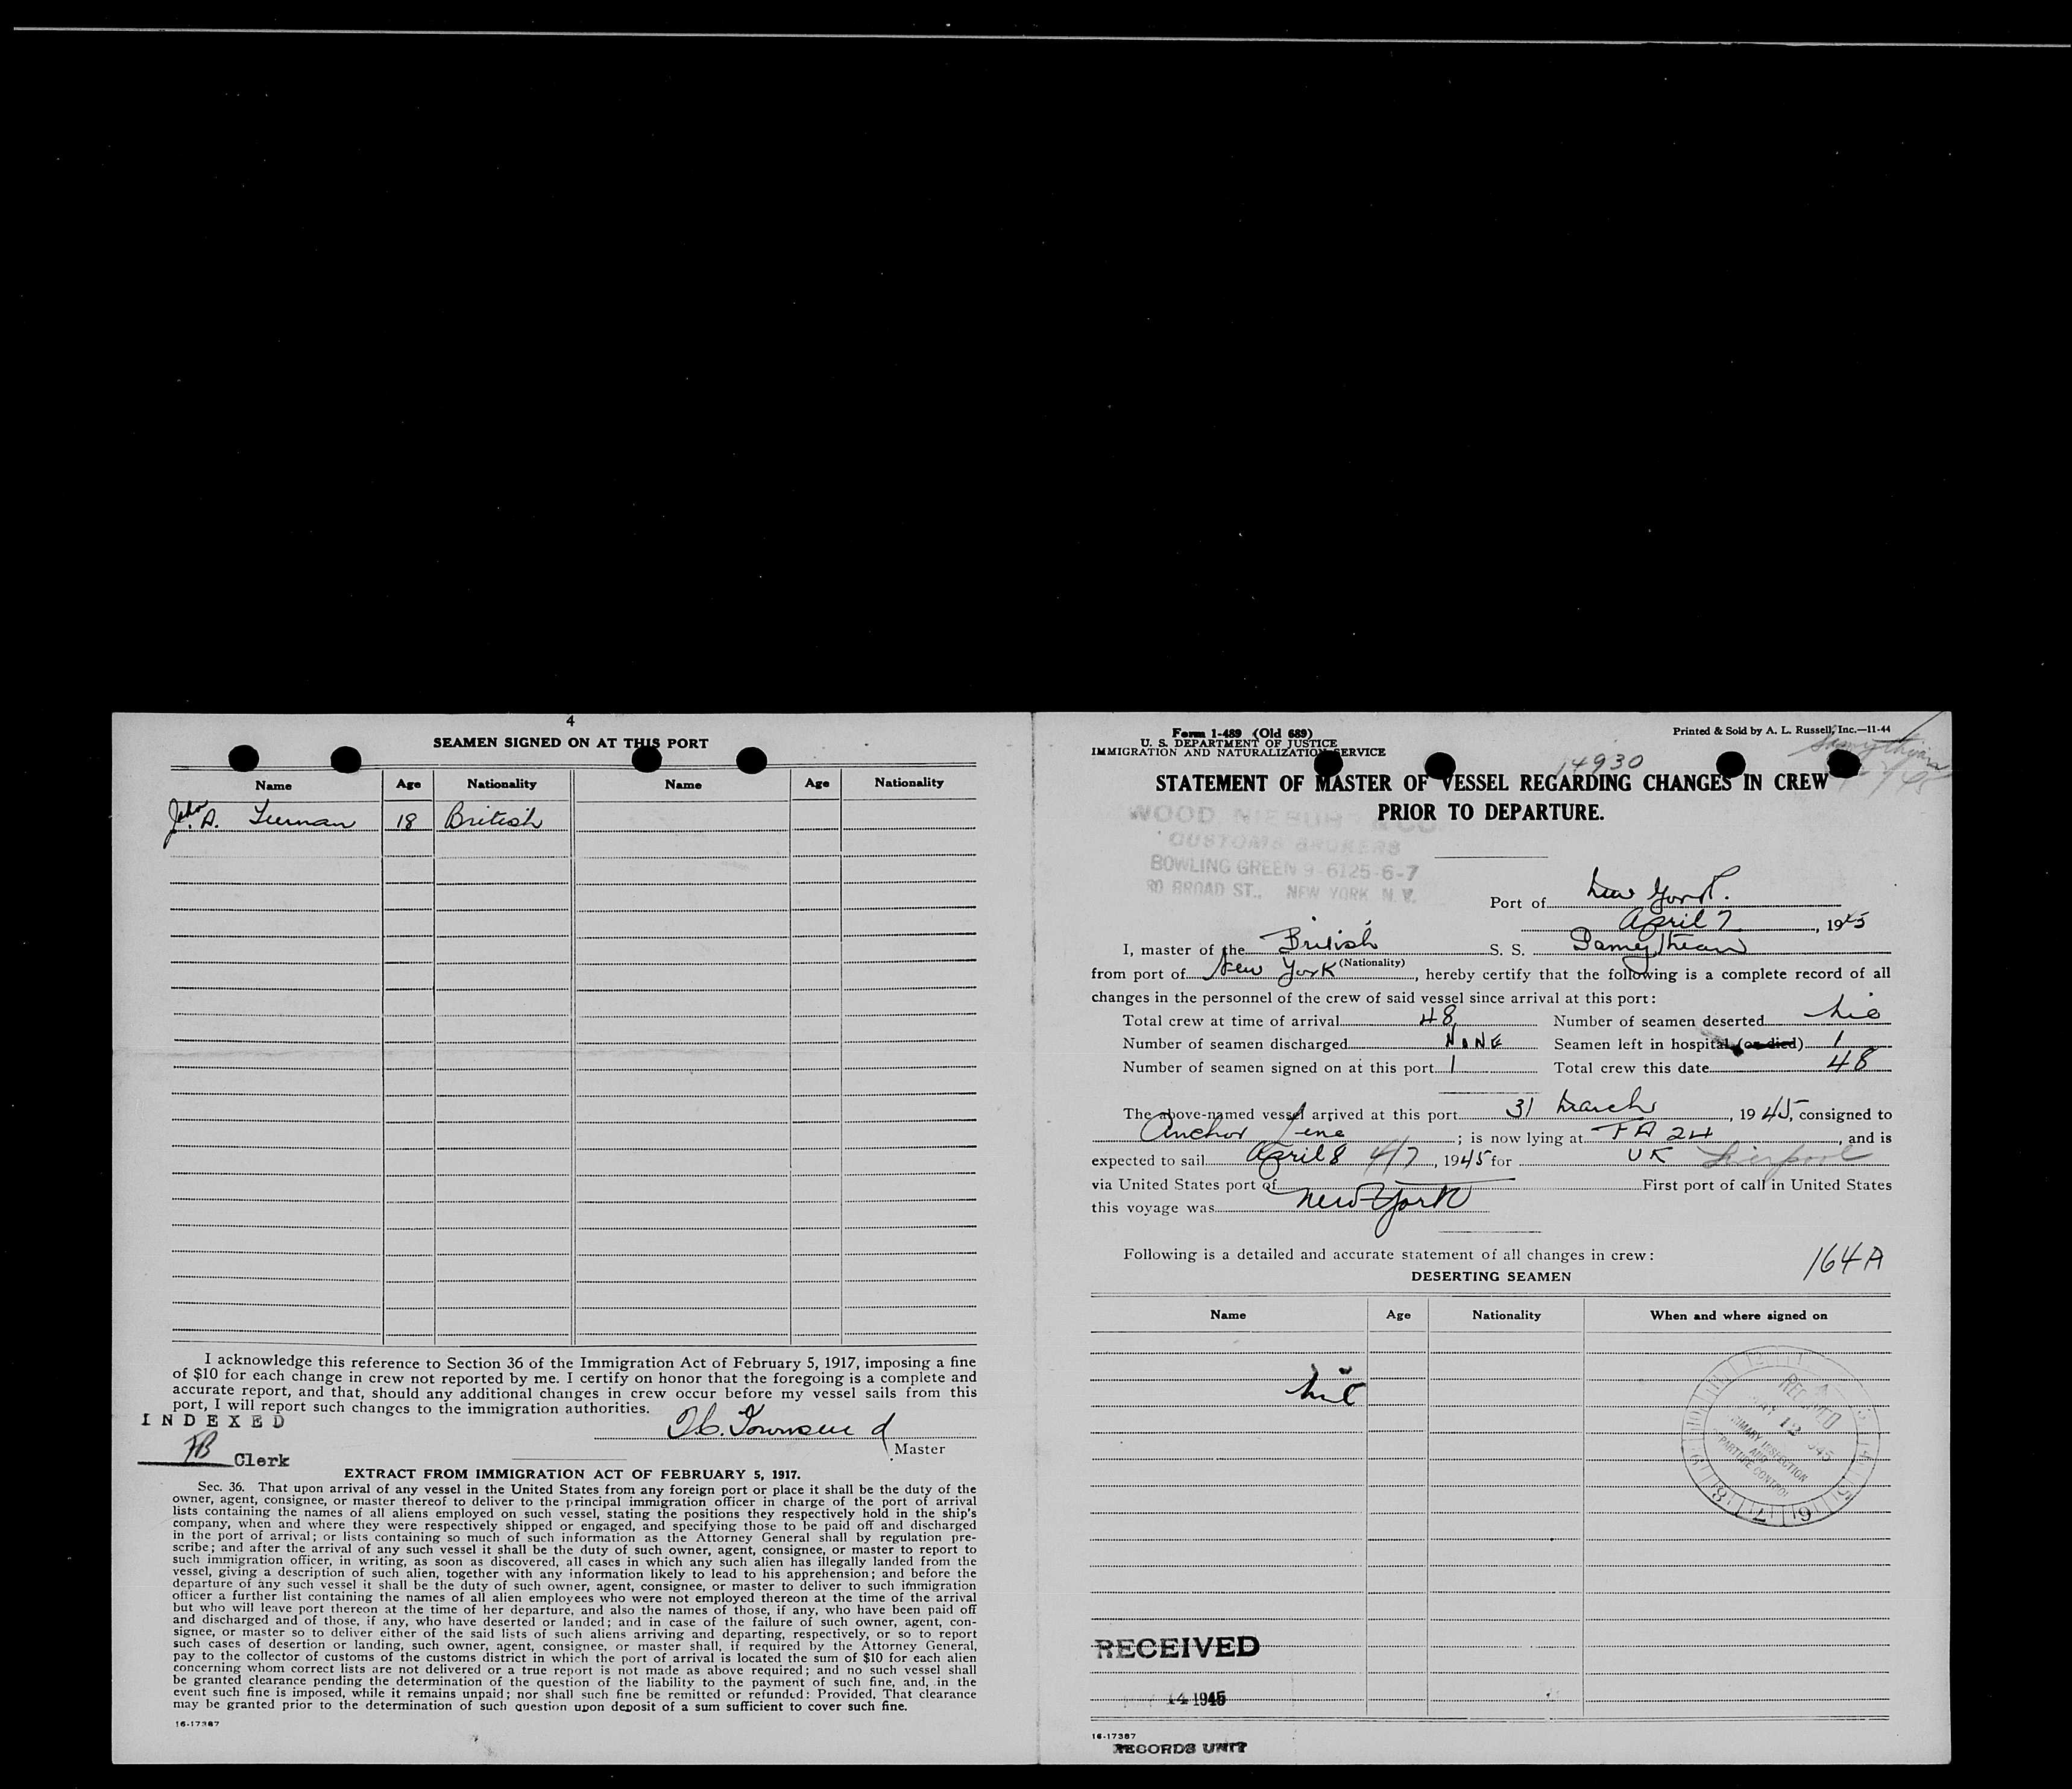 4
SEAMEN SIGNED ON AT THIS PORT
Name Age Nationality Name Age Nationality
John A. 18 British
I acknowledge this reference to Section 36 of the Immigration Act of February 5, 1917, imposing a fine
of $10 for each change in crew not reported by me. I certify on honor that the foregoing is a complete and
accurate report, and that, should any additional changes in crew occur before my vessel sails from this
port, I will report such changes to the immigration authorities.
INDEXED
Townsend
Master
Clerk
EXTRACT FROM IMMIGRATION ACT OF FEBRUARY 5, 1917.
Sec. 36. That upon arrival of any vessel in the United States from any foreign port or place it shall be the duty of the
owner, agent, consignee, or master thereof to deliver to the principal immigration officer in charge of the port of arrival
lists containing the names of all aliens employed on such vessel, stating the positions they respectively hold in the ship's
company, when and where they were respectively shipped or engaged, and specifying those to be paid off and discharged
in the port of arrival; or lists containing so much of such information as the Attorney General shall by regulation pre-
scribe; and after the arrival of any such vessel it shall be the duty of such owner, agent, consignee, or master to report to
such immigration officer, in writing, as soon as discovered, all cases in which any such alien has illegally landed from the
vessel, giving a description of such alien, together with any information likely to lead to his apprehension; and before the
departure of any such vessel it shall be the duty of such owner, agent, consignee, or master to deliver to such immigration
officer a further list containing the names of all alien employees who were not employed thereon at the time of the arrival
but who will leave port thereon at the time of her departure, and also the names of those, if any, who have been paid off
and discharged and of those, if any, who have deserted or landed; and in case of the failure of such owner, agent, con-
signee, or master so to deliver either of the said lists of such aliens arriving and departing, respectively, or so to report
such cases of desertion or landing, such owner, agent, consignee, or master shall, if required by the Attorney General,
pay to the collector of customs of the customs district in which the port of arrival is located the sum of $10 for each alien
concerning whom correct lists are not delivered or a true report is not made as above required; and no such vessel shall
be granted clearance pending the determination of the question of the liability to the payment of such fine, and, in the
event such fine is imposed, while it remains unpaid; nor shall such fine be remitted or refunded: Provided, That clearance
may be granted prior to the determination of such question upon deposit of a sum sufficient to cover such fine.
16-17387
Form 1-489 (Old 689)
U. S. DEPARTMENT OF JUSTICE
IMMIGRATION AND NATURALIZATION SERVICE
Printed & Sold by A. L. Russell, Inc.—11-44
14930
STATEMENT OF MASTER OF VESSEL REGARDING CHANGES IN CREW
PRIOR TO DEPARTURE.
WOOD NIEBUHR & CO.
CUSTOMS BROKERS
BOWLING GREEN 9-6125-6-7
80 BROAD ST., NEW YORK N. Y.
Port of New York.
April 7, 1945
I, master of the British S. S.
(Nationality)
from port of New York, hereby certify that the following is a complete record of all
changes in the personnel of the crew of said vessel since arrival at this port:
Total crew at time of arrival 48 Number of seamen deserted nil
Number of seamen discharged NONE Seamen left in hospital (or died) 1
Number of seamen signed on at this port 1 Total crew this date 48
The above-named vessel arrived at this port 31 March, 1945, consigned to
Anchor Line; is now lying at 24, and is
expected to sail April 8 4/7, 1945 for UK Liverpool
via United States port of First port of call in United States
this voyage was New York
Following is a detailed and accurate statement of all changes in crew:
164A
DESERTING SEAMEN
Name Age Nationality When and where signed on
nil
RECEIVED
12 1945
PRIMARY INSPECTION
AND
DEPARTURE CONTROL
RECEIVED
14 1945
16-17387
RECORDS UNIT